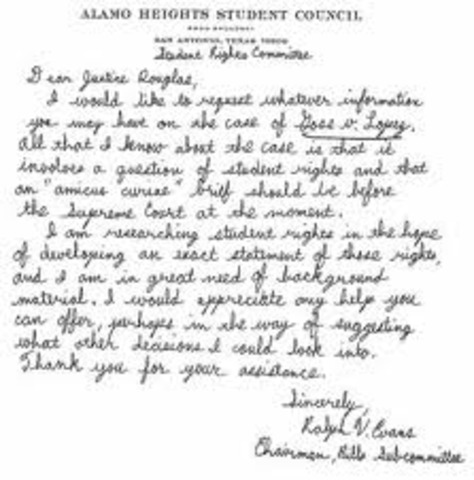 ALAMO HEIGHTS STUDENT COUNCIL
SAN ANTONIO, TEXAS
Student Rights Committee
Dear Justice Douglas,
I would like to request whatever information
you may have on the case of Goss v. Lopez.
All that I know about the case is that it
involves a question of student rights and that
an "amicus curiae" brief should be before
the Supreme Court at the moment.
I am researching student rights in the hope
of developing an exact statement of those rights,
and I am in great need of background
material. I would appreciate any help you
can offer, perhaps in the way of suggesting
what other decisions I could look into.
Thank you for your assistance.
Sincerely,
Ralph V. Evans
Chairman, Bills Subcommittee